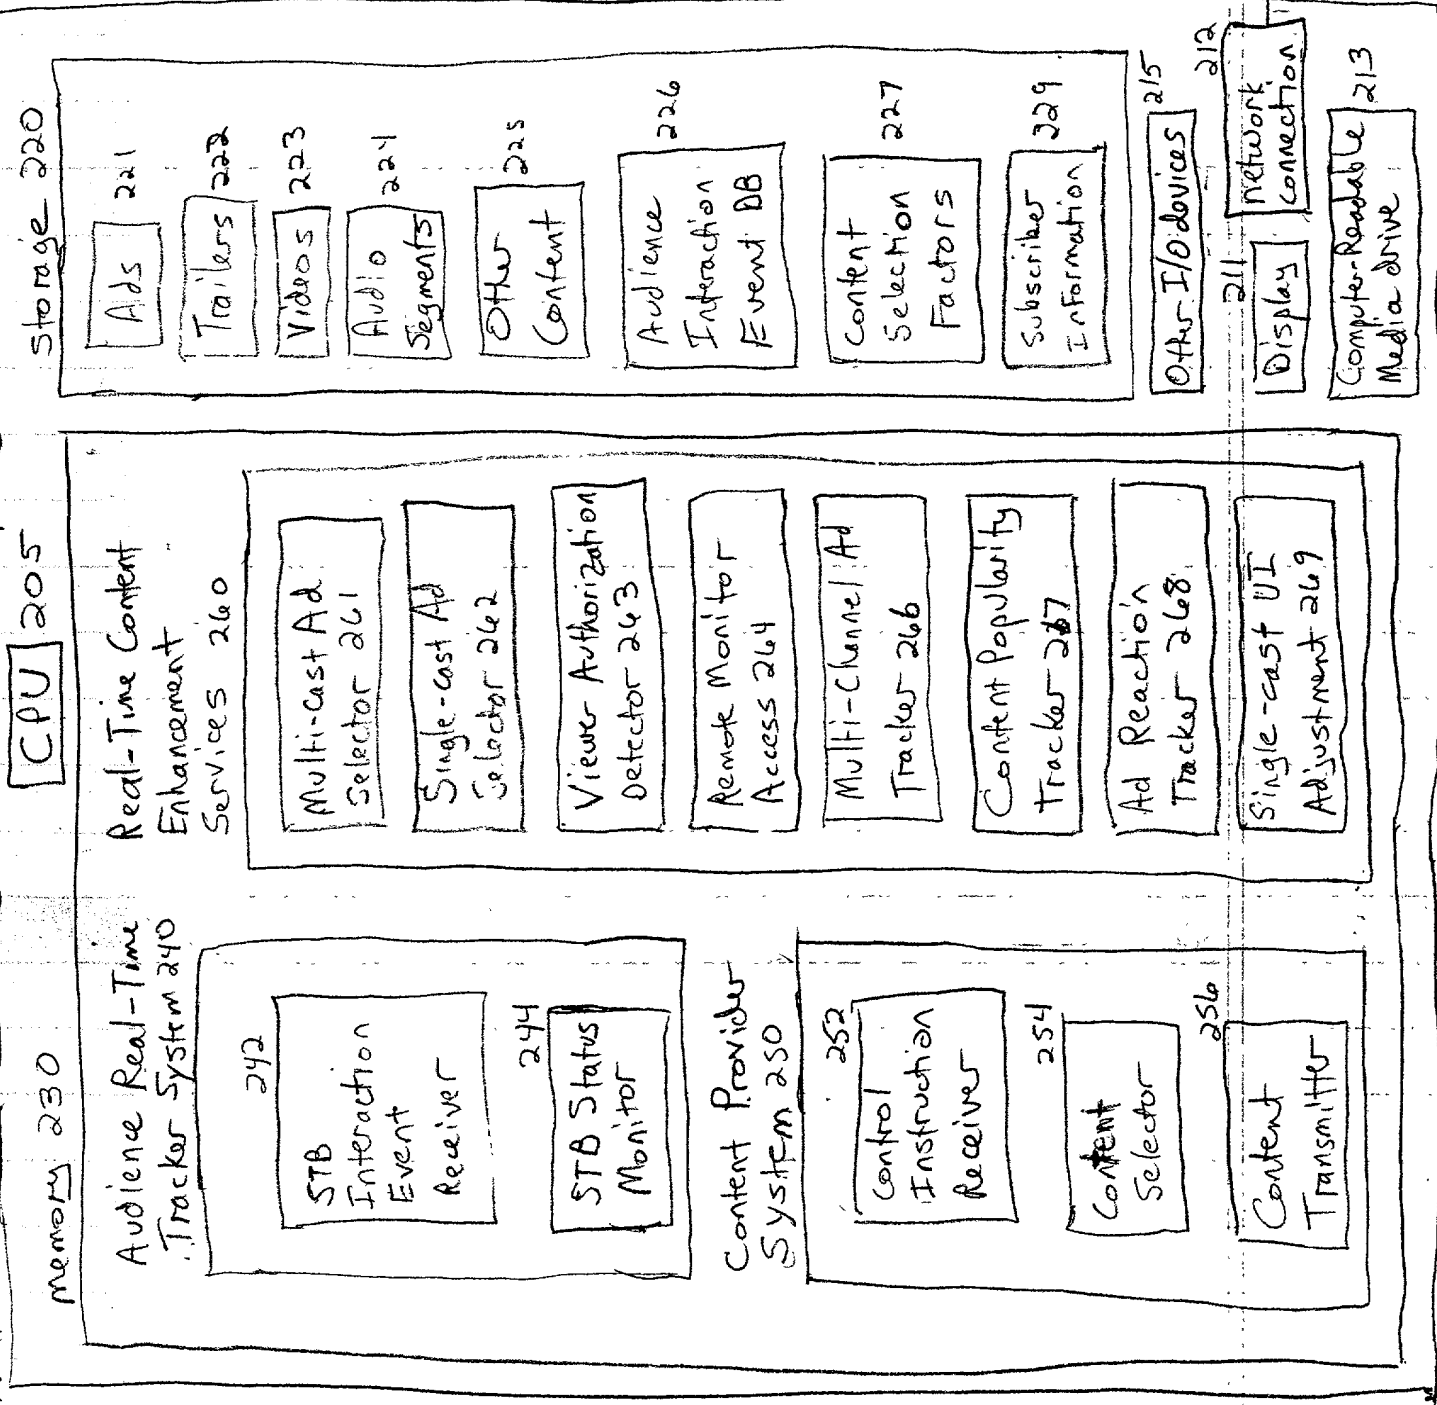 CPU 205
memory 230
Audience Real-Time
Tracker System 240
242
STB
Interaction
Event
Receiver
244
STB Status
Monitor
Content Provider
System 250
252
Control
Instruction
Receiver
254
Content
Selector
256
Content
Transmitter
Real-Time Content
Enhancement
Services 260
Multi-cast Ad
Selector 261
Single-cast Ad
Selector 262
Viewer Authorization
Detector 263
Remote Monitor
Access 264
Multi-Channel Ad
Tracker 266
Content Popularity
Tracker 267
Ad Reaction
Tracker 268
Single-cast UI
Adjustment 269
Storage 220
Ads 221
Trailers 222
Videos 223
Audio 224
Segments
Other 225
Content
Audience 226
Interaction
Event DB
Content 227
Selection
Factors
Subscriber 229
Information
Other I/O devices 215
211
Display
212
network
connection
Computer-Readable 213
Media drive